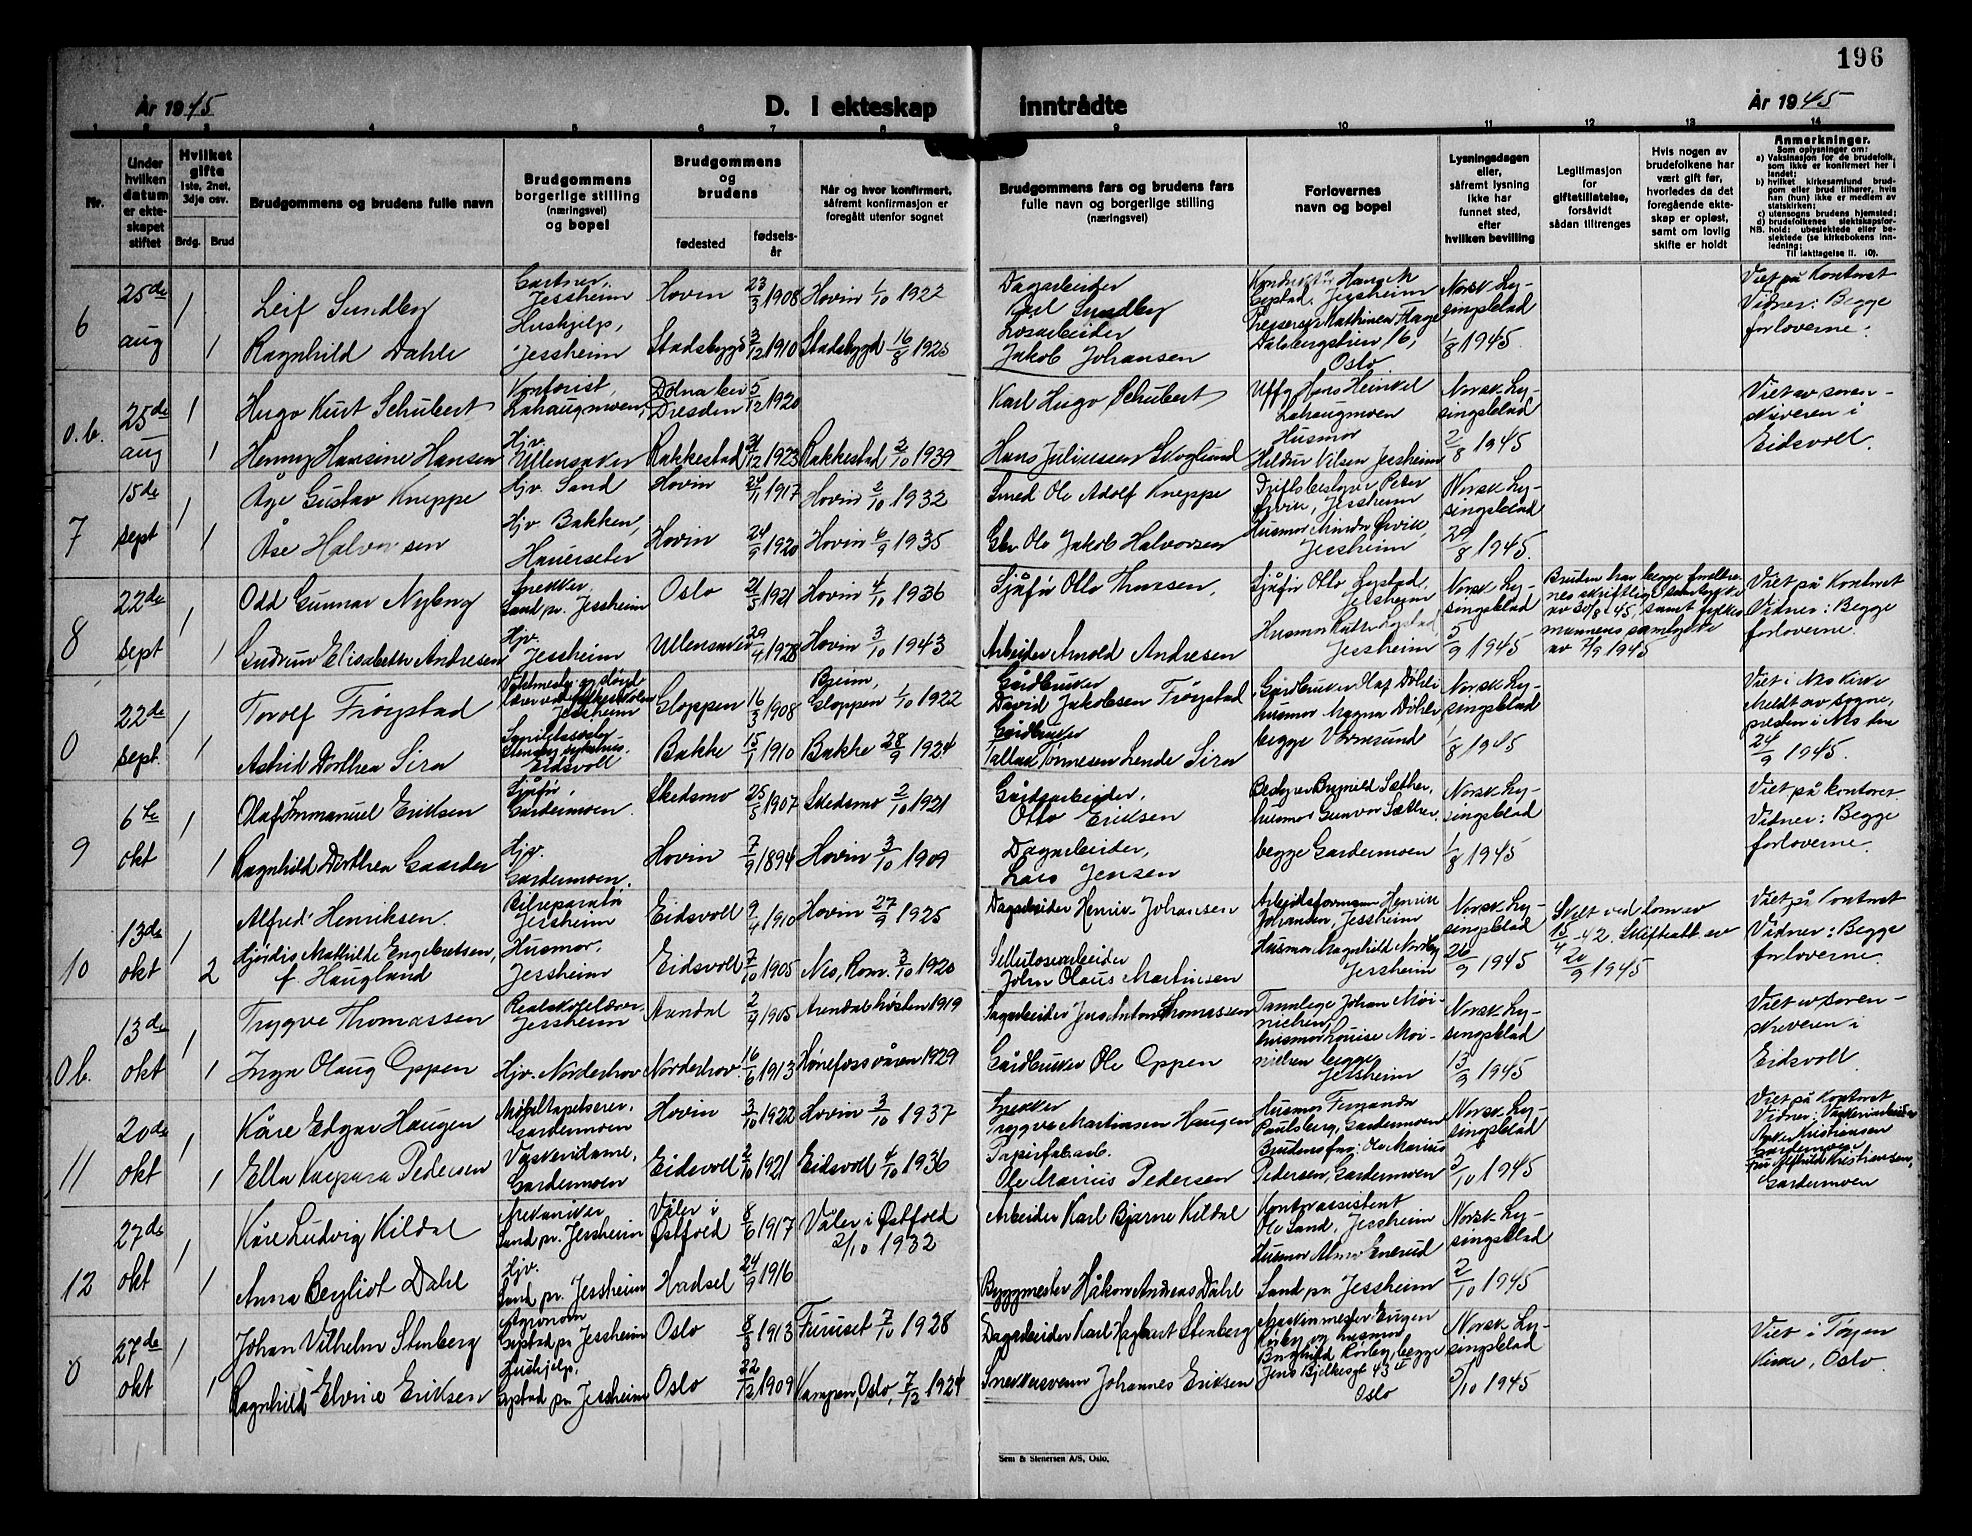 196
År 1945
D. I ekteskap inntrådte
År 1945
1 2 3 4 5 6 7 8 9 10 11 12 13 14
Nr.
Under hvilken datum er ekteskapet stiftet
Hvilket gifte
1ste, 2net, 3dje osv.
Brdg. Brud
Brudgommens og brudens fulle navn
Brudgommens borgerlige stilling (næringsvei) og bopel
Brudgommens og brudens
fødested
fødselsår
Når og hvor konfirmert, såfremt konfirmasjon er foregått utenfor sognet
Brudgommens fars og brudens fars fulle navn og borgerlige stilling (næringsvei)
Forlovernes navn og bopel
Lysningsdagen eller, såfremt lysning ikke har funnet sted, efter hvilken bevilling
Legitimasjon for giftetillatelse, forsåvidt sådan tiltrenges
Hvis nogen av brudefolkene har vært gift før, hvorledes da det foregående ekteskap er opløst, samt om lovlig skifte er holdt
Anmerkninger.
Som oplysninger om:
a) Vaksinasjon for de brudefolk, som ikke er konfirmert her i landet;
b) hvilket kirkesamfund brudgom eller brud tilhører, hvis han (hun) ikke er medlem av statskirken;
c) utensogns brudens hjemsted;
d) brudefolkenes slektskapsforhold: ubeslektede eller beslektede (se kirkebokens innledning;
NB.
Til iakttagelse II. 10).
6
25de aug
1
Leif Sundby
Gartner, Jessheim
Hovin 23/3 1908
Hovin 1/10 1922
Dagarbeider
Sundby
Jessheim
Norsk Lysingsblad 1/8 1945
Viet på Kontoret
Vidner: Begge forloverne.
1
Ragnhild Dahle
Hushjelp, Jessheim
Stadsbygd 3/12 1910
Stadsbygd 16/8 1925
Løsarbeider
Jakob Johansen
Dalsbergstien 16, Oslo
0.b.
25de aug
1
Hugo Kurt Schubert
Kontorist, Lahaugmoen
Dresden 5/12 1920
Karl Hugo Schubert
Uffg Hans Heinkel Lahaugmoen
Norsk Lysingsblad 2/8 1945
Viet av sorenskriveren i Eidsvoll.
1
Henny Hansine Hansen
Hjv. Ullensaker
Rakkestad 31/12 1923
Rakkestad 3/10 1939
Hans Juliussen Skoglund
Husmor Hildur Nilsen Jessheim
7
15de sept
1
Åge Gustav Kneppe
Hjv. Sand
Hovin 24/1 1917
Hovin 2/10 1932
Smed Ole Adolf Kneppe
Driftsbestyrer Peter Ørvik, Jessheim
Norsk Lysingsblad 29/8 1945
1
Åse Halvorsen
Hjv Bakken, Hauerseter
Hovin 24/9 1920
Hovin 6/9 1935
Ole Jakob Halvorsen
Husmor Minda Ørvik, Jessheim
8
22de sept
1
Odd Gunnar Nyberg
Snekker, Sand pr. Jessheim
Oslo 21/5 1921
Hovin 4/10 1936
Sjåfør Otto Thoresen,
Sjåfør Otto Gystad, Jessheim
Norsk Lysingsblad 5/9 1945
Bruden har begge foreldrenes skriftlige samtykke av 30/8-45, samt fylkesmannens samtykke av 7/9 1945
Viet på Kontoret
Vidner: Begge forloverne.
1
Gudrun Elisabeth Andresen
Hjv. Jessheim
Ullensaker 29/4 1928
Hovin 3/10 1943
Arbeider Arnold Andresen
Jessheim
0
22de sept.
1
Torolf Frøystad
Jessheim
Gloppen 16/3 1908
Gloppen 1/10 1922
Gårdbruker David Jakobsen Frøystad
Gårdbruker Olaf Døhlen
Norsk Lysingsblad 1/8 1945
Viet i Nes kirke
Meldt av sognepresten i Nes den 24/9 1945.
1
Astrid Dorthea Sira
Eidsvoll
Bakke 15/1 1910
Bakke 28/9 1924
Gårdbruker
Tallak Tønnesen Lende Sira
husmor Magna Døhlen begge Vormsund
9
6te okt
1
Olaf Immanuel Eriksen
Sjåfør, Gardermoen
Skedsmo 25/5 1907
Skedsmo 2/10 1921
Gårdsarbeider, Otto Eriksen
Bestyrer Brynild Sæther,
Norsk Lysingsblad 1/8 1945
Viet på kontoret.
Vidner: Begge forloverne.
1
Ragnhild Dorthea Gaarder
Hjv. Gardermoen.
Hovin 7/9 1894
Hovin 3/10 1909
Dagarbeider, Lars Jensen
husmor Gunvor Sæther, begge Gardermoen
10
13de okt
1
Alfred Henriksen.
Bilreparatør Jessheim
Eidsvoll 9/4 1910
Hovin 27/9 1925
Dagarbeider Henrik Johansen
Arbeidsformann Henrik Johansen, Jessheim
Norsk Lysingsblad 26/9 1945
Skilt ved dom av 15/4-42. Skifteatt. av 20/9 1945
Viet på Kontoret
Vidner: Begge forloverne.
2
Hjørdis Mathilde Engebretsen, f. Haugland
Husmor, Jessheim
Eidsvoll 7/10 1905
Nes, Rom. 3/10 1920
Cellulosearbeider
John Olaus Martinsen
Husmor Magnhild Nordby Jessheim
0b.
13de okt
1
Trygve Thomassen
Realskolelærer, Jessheim
Arendal 2/4 1905
Arendal høsten 1919
Sagarbeider Jens Anton Thomassen
Tannlege Johan Moi-nielsen,
Norsk Lysingsblad 13/9 1945
Viet av sorenskriveren i Eidsvoll
1
Inga Olaug Oppen
Hjv. Norderhov
Norderhov 16/6 1913
Hønefoss våren 1929
Gårdbruker Ole Oppen
husmor Louise Moi-nielsen begge Jessheim
11
20de okt
1
Kåre Edgar Haugen
Møbeltapetserer, Gardermoen
Hovin 3/10 1922
Hovin 3/10 1937
Snekker
Trygve Martinsen Haugen
Husmor Fernanda Paulsberg, Gardermoen
Norsk Lysingsblad 3/10 1945
Viet på Kontoret
Vidner:
Kristiansen Gardermoen
Fru Kristiansen, Gardermoen
1
Ella Kaspara Pedersen
Vaskeridame, Gardermoen
Eidsvoll 2/10 1921
Eidsvoll 4/10 1936
Papirfab.arb.
Ole Marius Pedersen
Brudens far: Ole Marius Pedersen, Gardermoen
12
27de okt
1
Kåre Ludvig Kildal
Mekaniker Sand pr. Jessheim
Våler i Østfold 8/6 1917
Våler i Østfold 2/10 1932
Arbeider Karl Bjarne Kildal
Kontorassistent Ole Sand, Jessheim
Norsk Lysingsblad 2/10 1945
1
Anna Bergliot Dahl
Hjv. Sand pr. Jessheim
Hadsel 24/9 1916
Byggmester Håkon Andreas Dahl
Husmor Alma Enerud Sand pr Jessheim
0
27de okt
1
Johan Vilhelm Stenberg
Agronom Gystad pr Jessheim
Oslo 8/5 1913
Furuset 7/10 1928
Dagarbeider Karl Hagbart Stenberg
Maskinmester Eugen Rørby og husmor Borghild Rørby begge Jens Bjelkesgt 43 II Oslo
Norsk Lysingsblad 3/10 1945
Viet i Tøyen Kirke, Oslo
1
Ragnhild Elvine Eriksen
Hushjelp, Gystad pr. Jessheim
Oslo 22/12 1909
Kampen, Oslo, 7/12 1924
Snekkersvenn Johannes Eriksen
Sem & Stenersen A/S, Oslo.